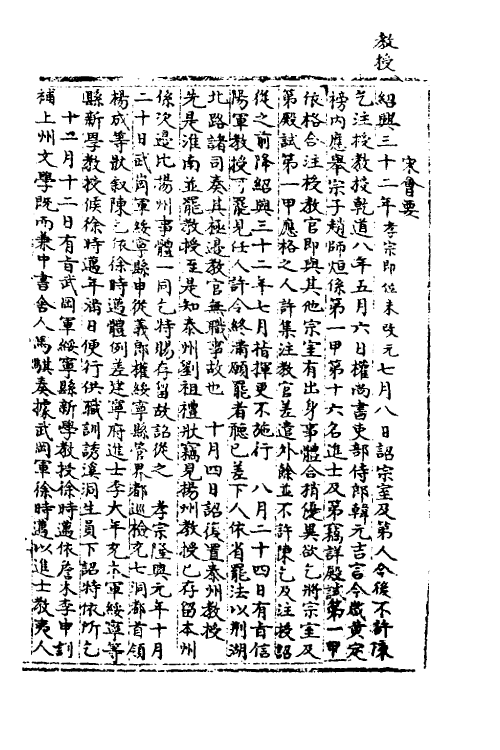 教授
宋會要
紹興三十二年孝宗即位未改元七月八日詔宗室及第人今後不許陳
乞注授教授乾道八年五月六日權尚書吏部侍郎韓元吉言今歲黃定
榜內應舉宗子趙師烜係第一甲第十六名進士及第竊詳殿試第一甲
依格合注授教官即與其他宗室有出身事體合稍優異欲乞將宗室及
第殿試第一甲應格之人許集注教官差遣外餘並不許陳乞及注授詔
從之前降紹興三十二年七月指揮更不施行 八月二十四日有旨信
陽軍教授可罷見任人許令終滿願罷者聽已差下人依省罷法以荊湖
北路諸司奏其極邊教官無職事故也 十月四日詔復置泰州教授
先是淮南並罷教授至是知泰州劉祖禮狀竊見揚州教授已存留本州
係次邊比揚州事體一同乞特賜存留故詔從之 孝宗隆興元年十月
二十日武岡軍綏寧縣申從義郎權綏寧縣管界都巡檢充七洞都首領
楊成等狀叙陳乞依徐時邁體例差建寧府進士李大年充本軍綏寧等
縣新學教授候徐時邁年滿日便行供職訓誘溪洞生員下詔特依所乞
十二月十二日有旨武岡軍綏寧縣新學教授徐時邁依詹木李申劄
補上州文學既而兼中書舍人馬騏奏據武岡軍徐時邁以進士教夷人